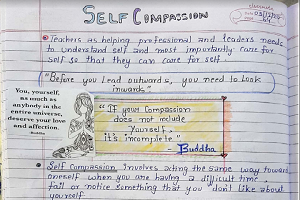 SELF COMPASSION
Teachers as helping professional and leaders needs
to understand self and most importantly care for
self so that they can care for self.
"Before you Lead outwards, you need to look
inwards."
You, yourself,
as much as
anybody in the
entire universe,
deserve your love
and affection.
"If your Compassion
does not include
Yourself,
it's incomplete"
- Buddha
Self Compassion involves acting the same way toward
oneself when you are having a difficult time,
fail or notice something that you don't like about
yourself